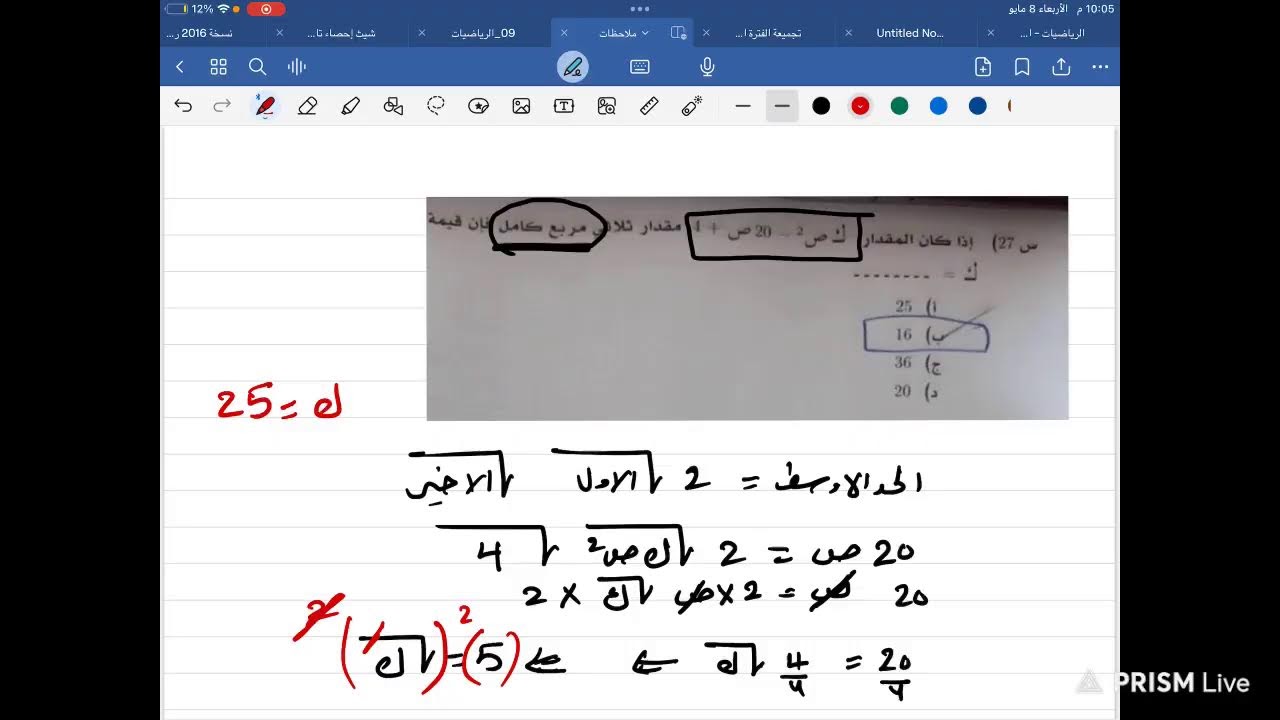 12% 10:05 م الأربعاء 8 مايو
الرياضيات - ا... Untitled No... تجميعة الفترة ا... ملاحظات 09_الرياضيات شيت إحصاء تا... نسخة 2016 ر...
س 27) إذا كان المقدار ك ص² - 20 ص + 4 مقدار ثلاثي مربع كامل فإن قيمة
ك = --------
أ) 25
ب) 16
ج) 36
د) 20
ك = 25
الحد الاوسط = 2 √الاول √الاخير
20 ص = 2 √ك ص² √4
20 ص = 2 × ص √ك × 2
20/4 = 4/4 √ك ⇐ ⇐ (5)² = (√ك)²
PRISM Live